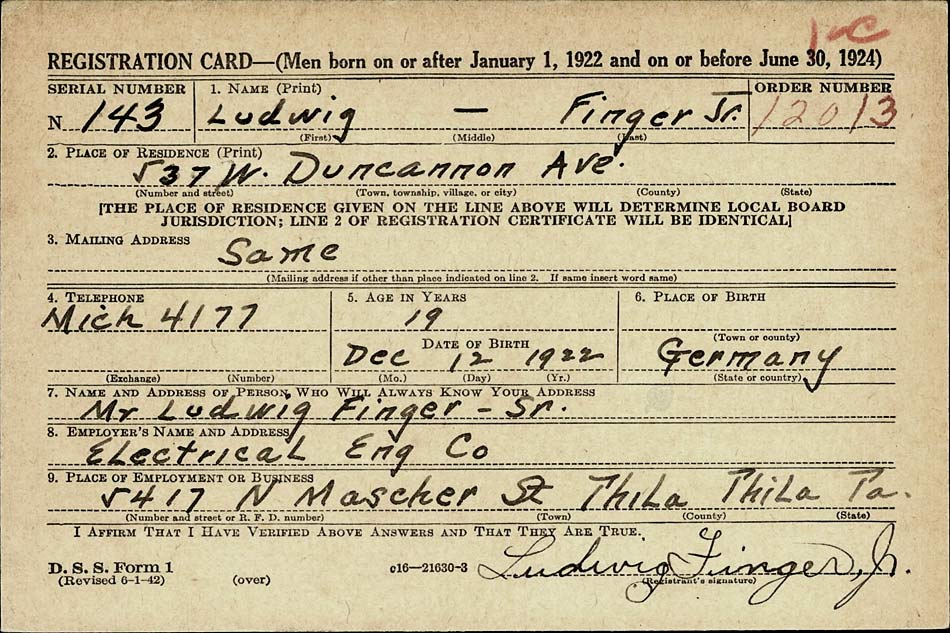 1-C
REGISTRATION CARD—(Men born on or after January 1, 1922 and on or before June 30, 1924)
SERIAL NUMBER 1. NAME (Print) ORDER NUMBER
N 143 Ludwig — Finger Jr. 12013
(First) (Middle) (Last)
2. PLACE OF RESIDENCE (Print)
537 W. Duncannon Ave.
(Number and street) (Town, township, village, or city) (County) (State)
[THE PLACE OF RESIDENCE GIVEN ON THE LINE ABOVE WILL DETERMINE LOCAL BOARD
JURISDICTION; LINE 2 OF REGISTRATION CERTIFICATE WILL BE IDENTICAL]
3. MAILING ADDRESS
Same
(Mailing address if other than place indicated on line 2. If same insert word same)
4. TELEPHONE 5. AGE IN YEARS 6. PLACE OF BIRTH
Mich 4177 19
(Town or county)
DATE OF BIRTH
Dec 12 1922 Germany
(Exchange) (Number) (Mo.) (Day) (Yr.) (State or country)
7. NAME AND ADDRESS OF PERSON WHO WILL ALWAYS KNOW YOUR ADDRESS
Mr Ludwig Finger - Sr.
8. EMPLOYER'S NAME AND ADDRESS
Electrical Eng Co
9. PLACE OF EMPLOYMENT OR BUSINESS
5417 N Mascher St Phila Phila Pa.
(Number and street or R. F. D. number) (Town) (County) (State)
I AFFIRM THAT I HAVE VERIFIED ABOVE ANSWERS AND THAT THEY ARE TRUE.
D. S. S. Form 1
(Revised 6-1-42) (over) c16—21630-3 Ludwig Finger, Jr.
(Registrant's signature)